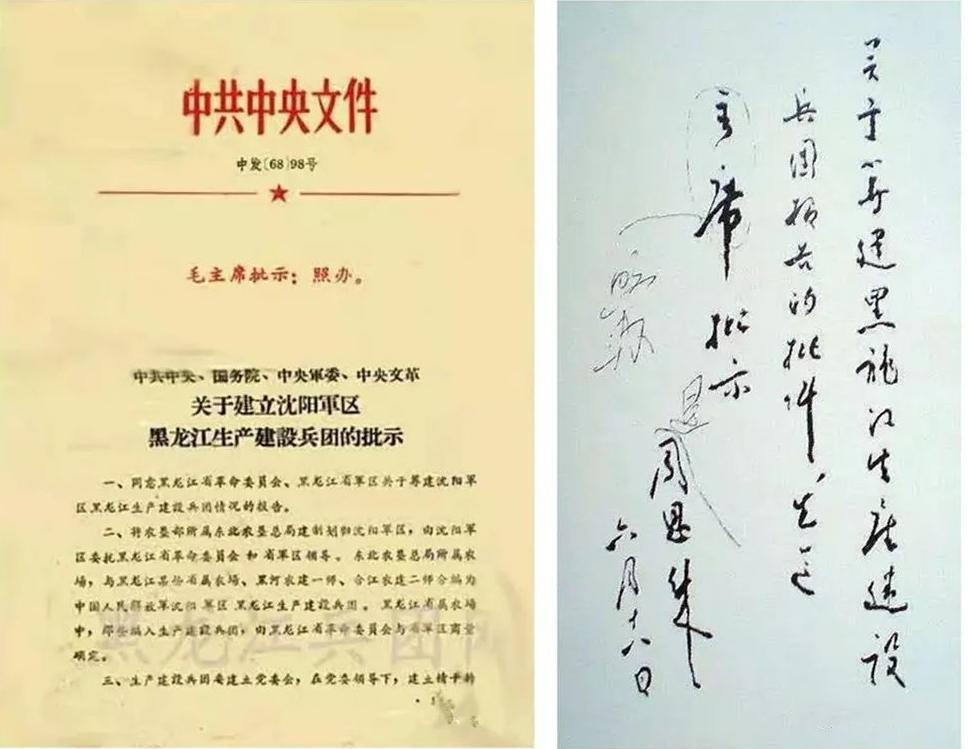 中共中央文件
中发〔68〕98号
毛主席批示：照办。
中共中央、国务院、中央軍委、中央文革
关于建立沈阳軍区
黑龙江生产建設兵团的批示
一、同意黑龙江省革命委员会、黑龙江省軍区关于筹建沈阳軍
区黑龙江生产建設兵团情况的报告。
二、将农垦部所属东北农垦总局建制划归沈阳軍区，由沈阳軍
区委托黑龙江省革命委员会和省軍区领导。东北农垦总局所属农
場，与黑龙江某些省属农場、黑河农建一师、合江农建二师合编为
中国人民解放軍沈阳軍区黑龙江生产建設兵团。黑龙江省属农場
中，那些编入生产建設兵团，由黑龙江省革命委员会与省軍区商量
确定。
三、生产建設兵团要建立党委会，在党委领导下，建立精干的
黑龙江兵团网
关于筹建黑龙江生产建设
兵团报告的批件，先送
主席批示
照办
周恩来
六月十八日